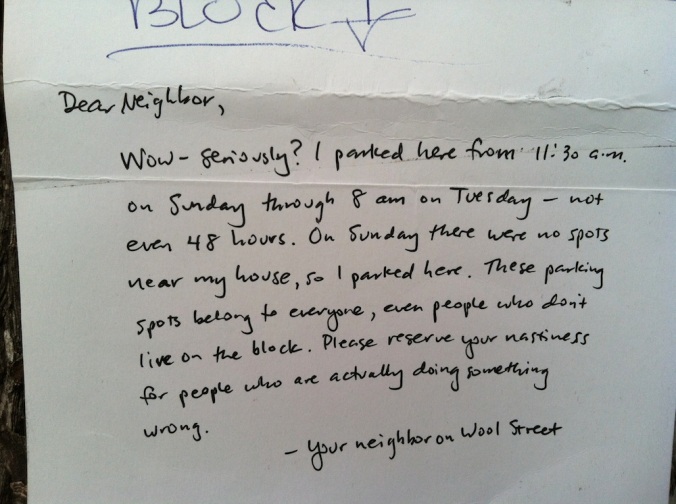 BLOCK!
Dear Neighbor,
Wow - seriously? I parked here from 11:30 a.m.
on Sunday through 8 am on Tuesday - not
even 48 hours. On Sunday there were no spots
near my house, so I parked here. These parking
spots belong to everyone, even people who don't
live on the block. Please reserve your nastiness
for people who are actually doing something
wrong.
- Your neighbor on Wool Street